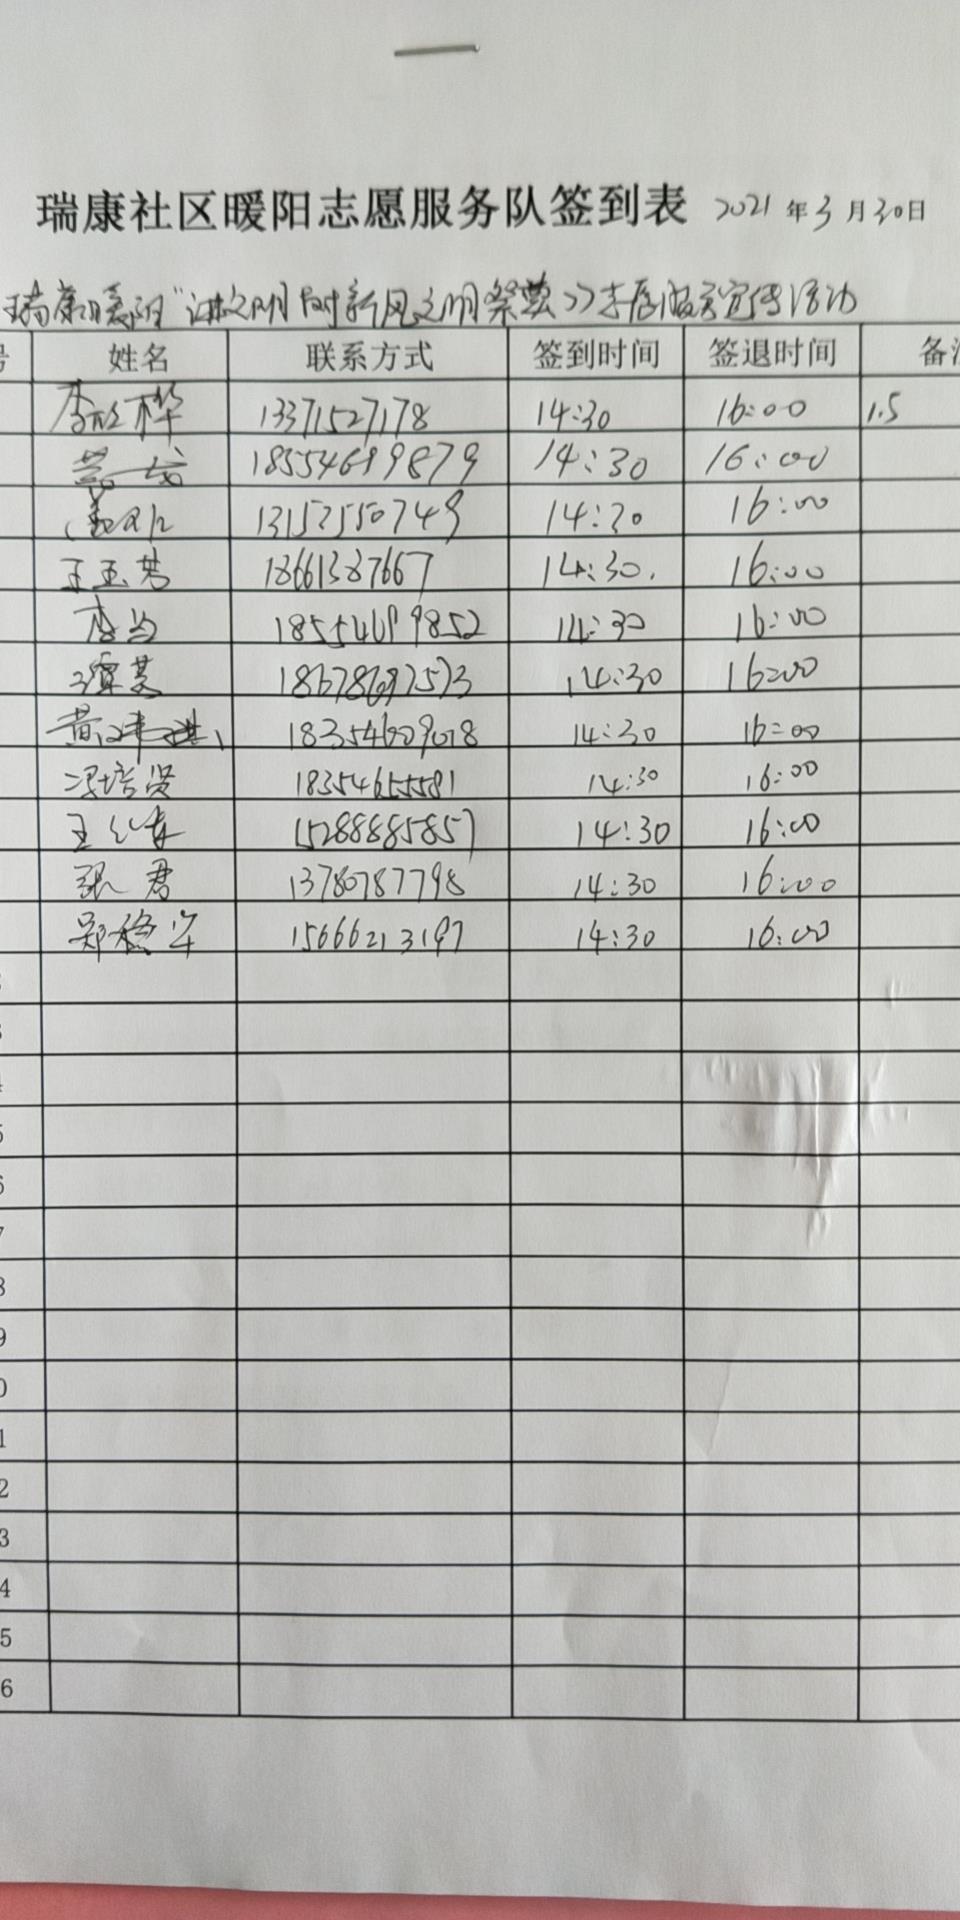 瑞康社区暖阳志愿服务队签到表 2021年3月30日
瑞康暖阳"讲文明 树新风文明祭奠》志愿服务宣传活动
号 姓名 联系方式 签到时间 签退时间 备注
13371527178 14:30 16:00 1.5
18554699879 14:30 16:00
13152550749 14:30 16:00
王玉芳 18661387667 14:30. 16:00
14:30 16:00
14:30 16:00
18354609018 14:30 16:00
冯培贤 18354655581 14:30 16:00
王 15288885857 14:30 16:00
张君 13780787798 14:30 16:00
郑 15666213197 14:30 16:00
4
5
6
7
8
9
0
1
2
3
4
5
6